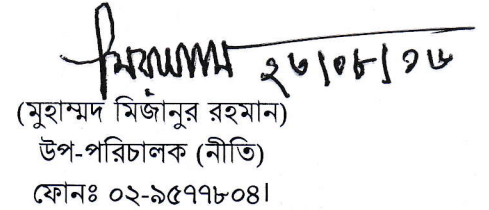 ২৬|০৮|১৬
(মুহাম্মদ মিজানুর রহমান)
উপ-পরিচালক (নীতি)
ফোনঃ ০২-৯৫৭৭৮০৪।